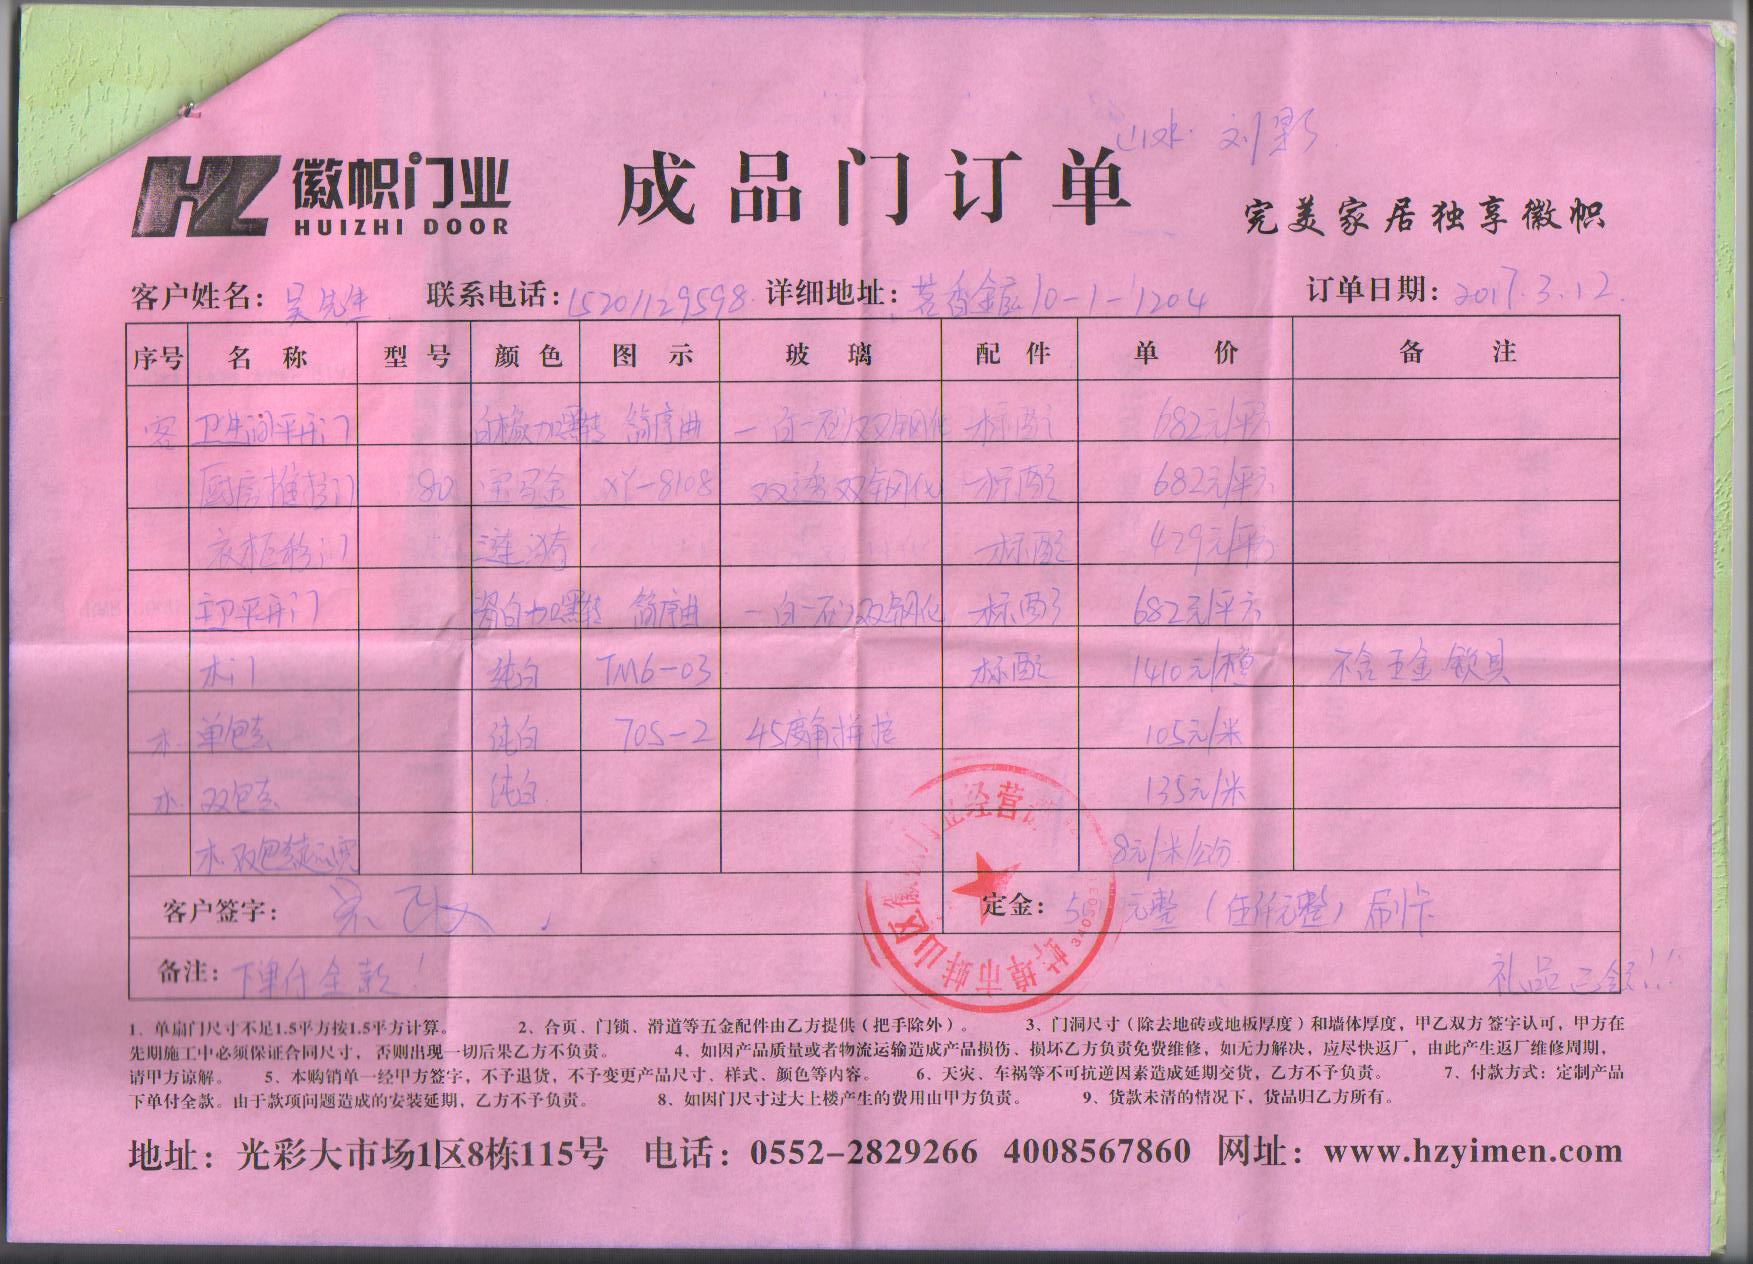 山水 刘影
HZ 徽帜门业 HUIZHI DOOR
成品门订单
完美家居独享徽帜
客户姓名：吴先生 联系电话：15201129598 详细地址：茗香金庭10-1-1204 订单日期：2017.3.12.
序号 名称 型号 颜色 图示 玻璃 配件 单价 备注
客 卫生间平开门 白橡加黑转 简序曲 一白一砂双钢化 标配 682元/平方
厨房推拉门 80 宝马金 XY-8108 双透双钢化 标配 682元/平方
衣柜移门 涟漪 标配 429元/平方
主卫平开门 瓷白加黑转 简序曲 一白一砂双钢化 标配 682元/平方
木门 纯白 TM6-03 标配 1410元/樘 不含五金锁具
木 单包套 纯白 70S-2 45度角拼接 105元/米
木 双包套 纯白 135元/米
木双包套 8元/米/公分
客户签字： 定金：元整（伍仟元整）刷卡
备注：下单付全款！ 礼品已领!!!
门业经营 蚌埠市蚌山区徽
1、单扇门尺寸不足1.5平方按1.5平方计算。 2、合页、门锁、滑道等五金配件由乙方提供（把手除外）。 3、门洞尺寸（除去地砖或地板厚度）和墙体厚度，甲乙双方签字认可，甲方在
先期施工中必须保证合同尺寸，否则出现一切后果乙方不负责。 4、如因产品质量或者物流运输造成产品损伤、损坏乙方负责免费维修，如无力解决，应尽快返厂，由此产生返厂维修周期，
请甲方谅解。 5、本购销单一经甲方签字，不予退货，不予变更产品尺寸、样式、颜色等内容。 6、天灾、车祸等不可抗逆因素造成延期交货，乙方不予负责。 7、付款方式：定制产品
下单付全款。由于款项问题造成的安装延期，乙方不予负责。 8、如因门尺寸过大上楼产生的费用由甲方负责。 9、货款未清的情况下，货品归乙方所有。
地址：光彩大市场1区8栋115号 电话：0552-2829266 4008567860 网址：www.hzyimen.com